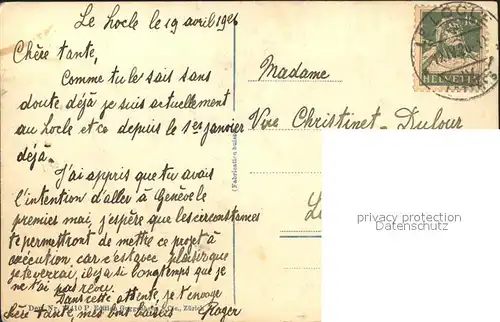 Le Locle le 19 avril 1926
Chère tante,
Comme tu le sais sans
doute déjà je suis actuellement
au Locle et ce depuis le 1er janvier
déjà.
J'ai appris que tu avais
l'intention d'aller à Genève le
premier mai, j'espère que les circonstances
te permettront de mettre ce projet à
exécution car c'est avec plaisir que
je te verrai, il y a si longtemps que je
ne t'ai pas revu.
Dans cette attente, je t'envoye
chère tante, mes bons baisers Roger
Madame
Vve Christinet-Dufour
HELVETIA
(Fabrication suisse)
privacy protection
Datenschutz